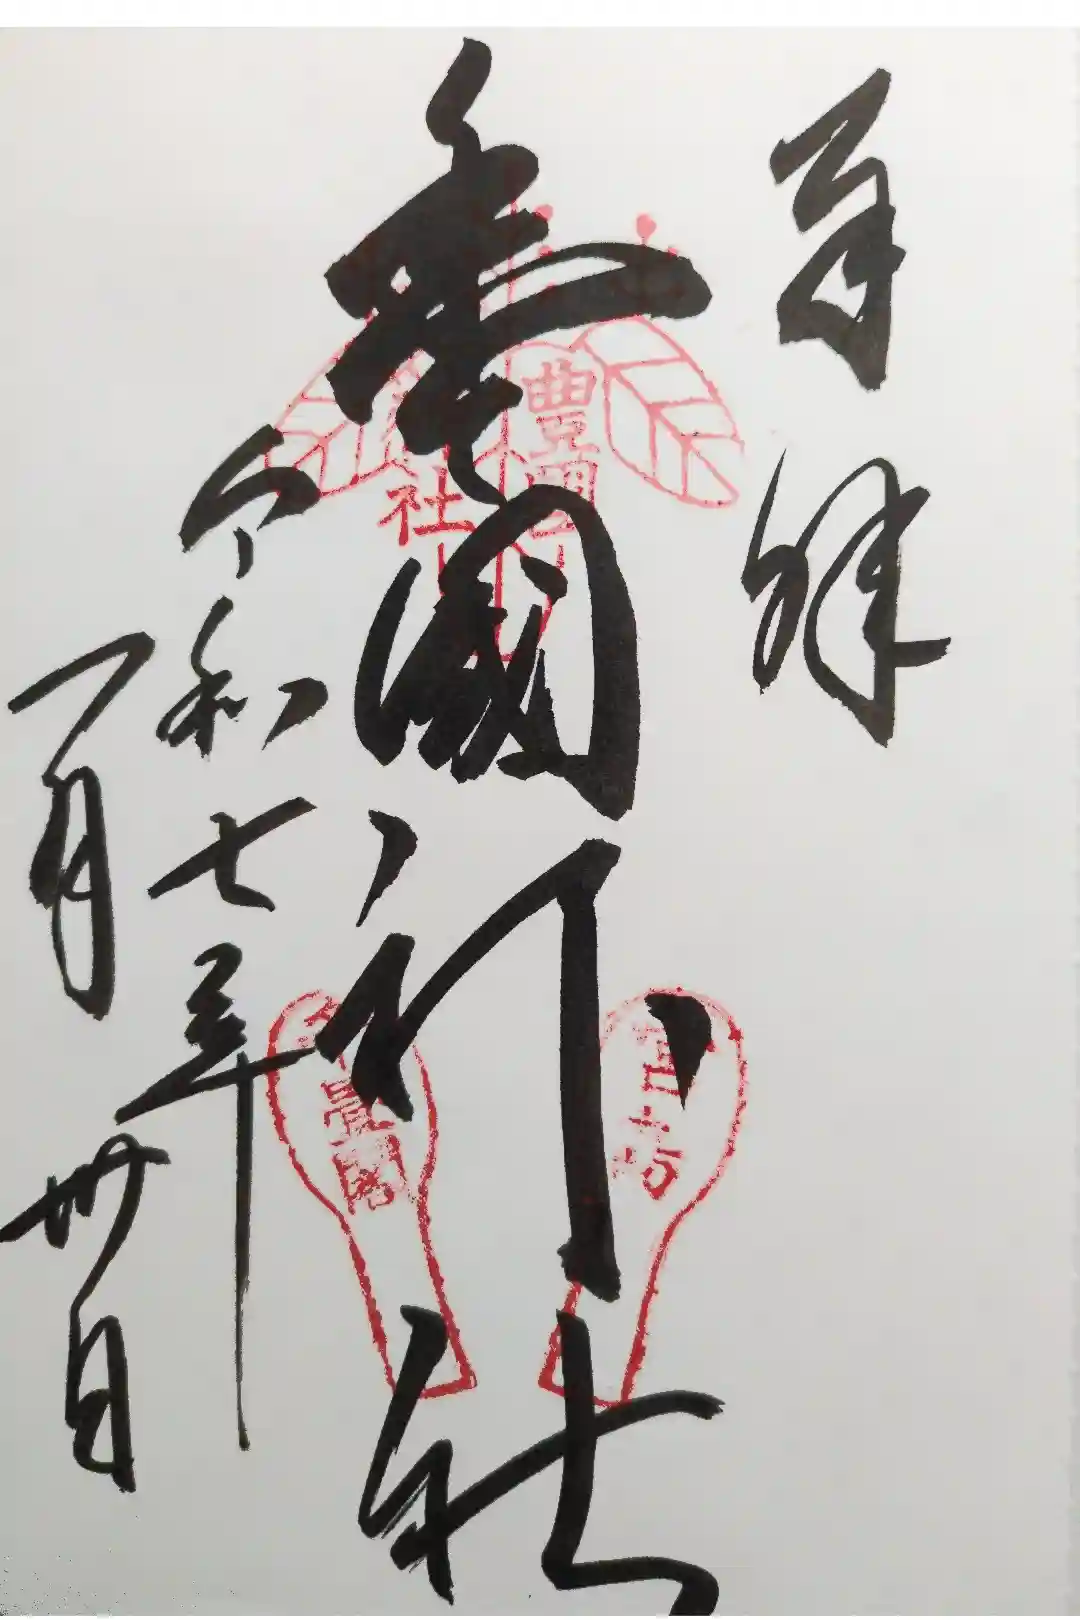 奉拝
豊國
社
豊國神社
令和七年
一月卅日